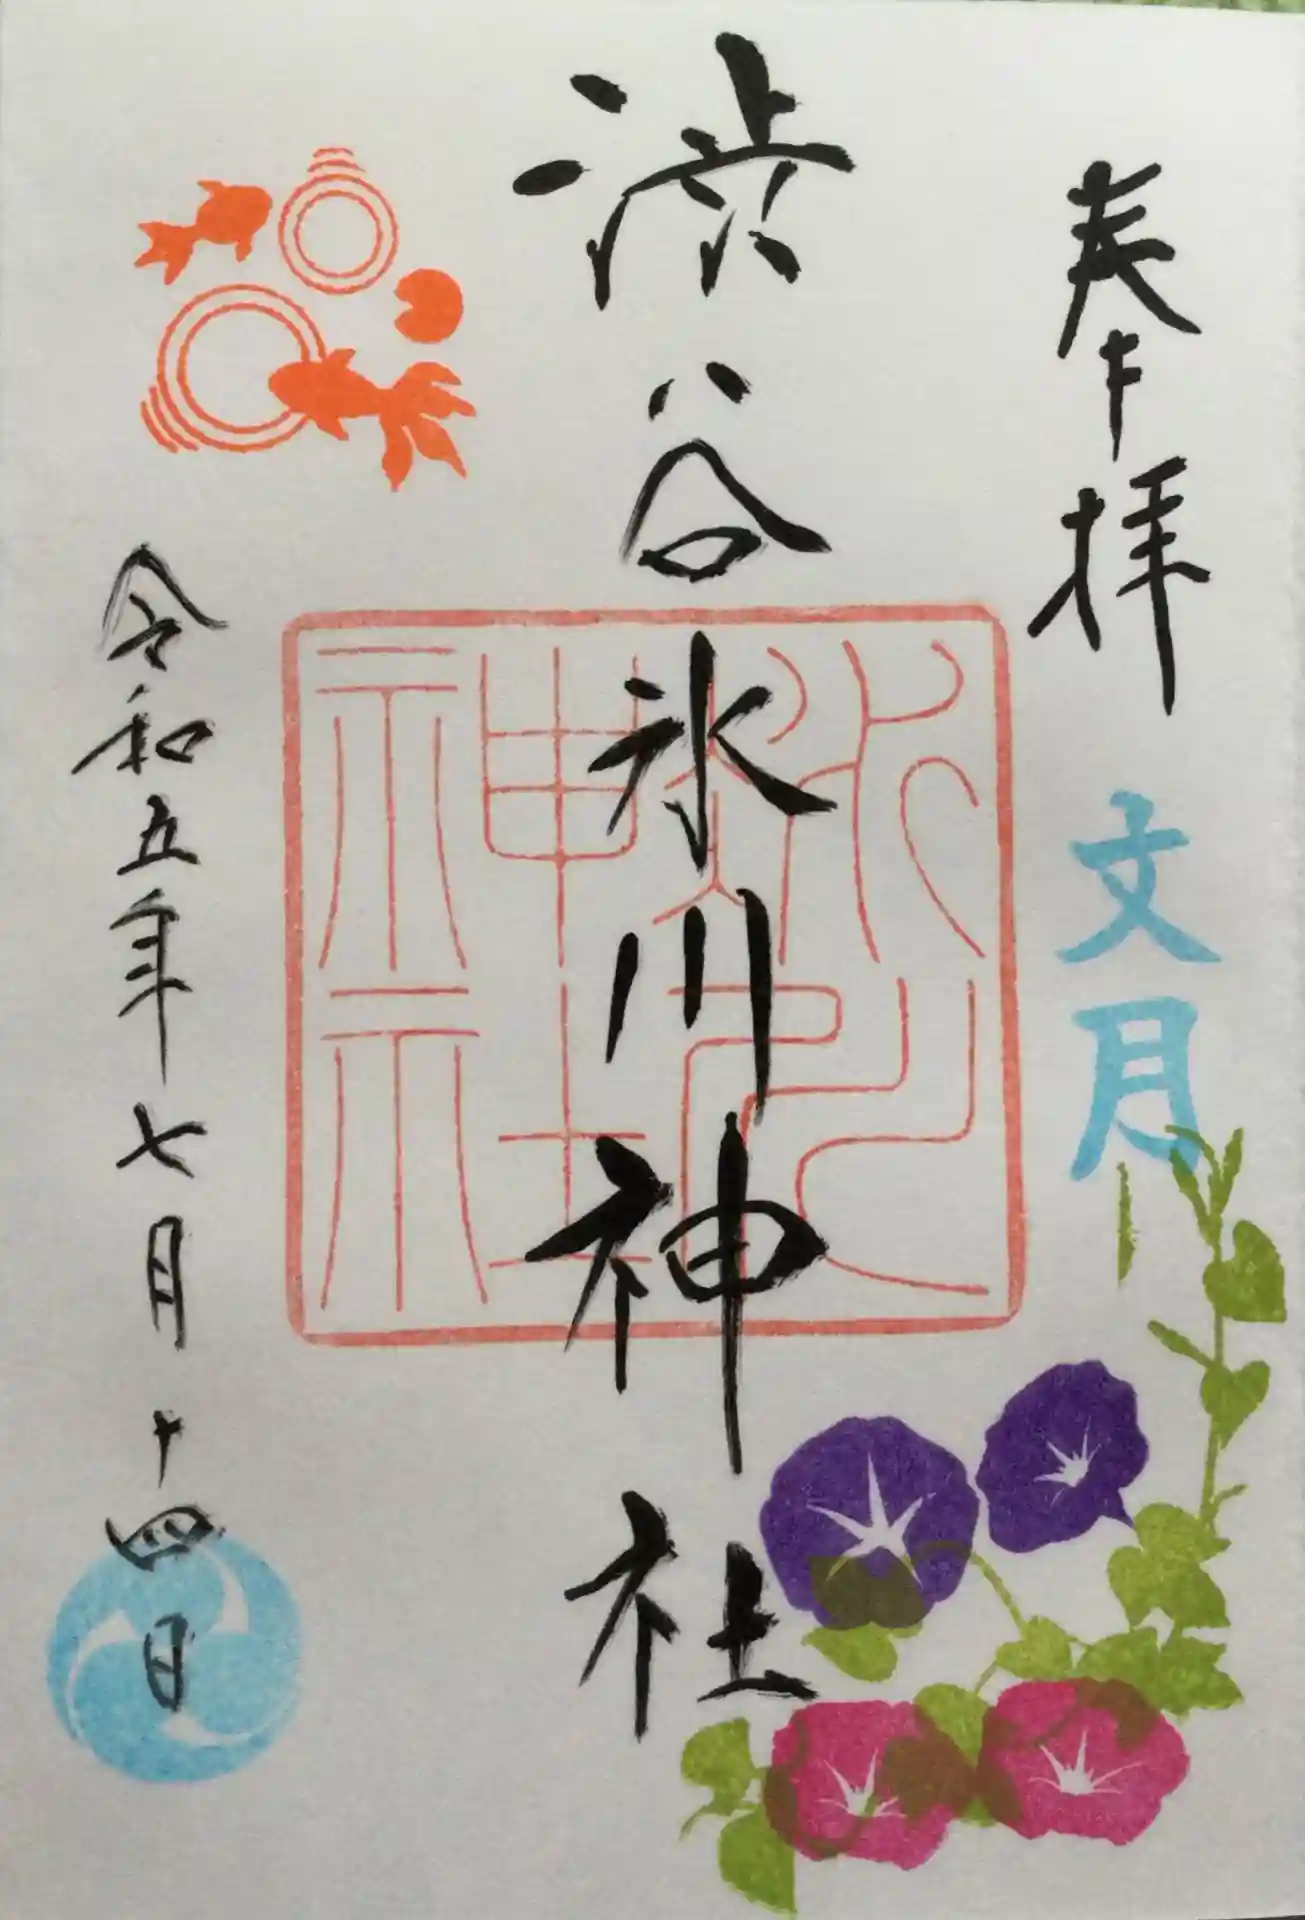 奉拝
文月
渋谷氷川神社
氷川神社
令和五年七月十四日